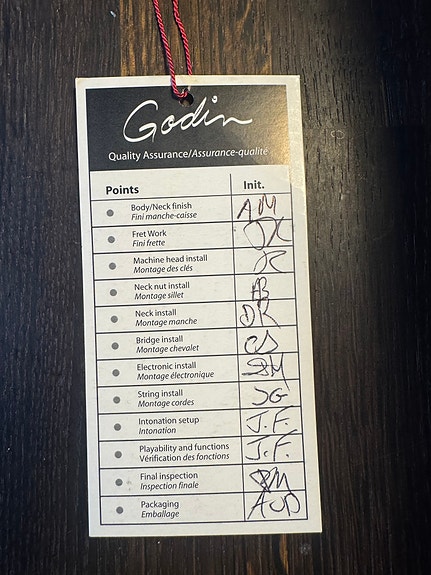 Godin
Quality Assurance/Assurance-qualité
Points Init.
Body/Neck finish AM
Fini manche-caisse
Fret Work
Fini frette
Machine head install
Montage des clés
Neck nut install
Montage sillet
Neck install DR
Montage manche
Bridge install
Montage chevalet
Electronic install
Montage électronique
String install JG
Montage cordes
Intonation setup J.F.
Intonation
Playability and functions J.F.
Vérification des fonctions
Final inspection
Inspection finale
Packaging
Emballage